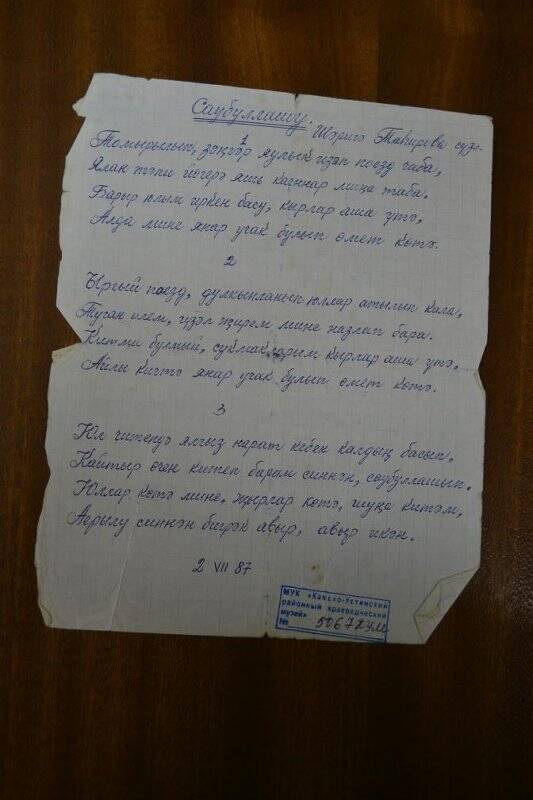 Саубуллашу.
Шәрига Тапирова сүзе
1
яулык изәп поезд чаба,
Ялан тәпи йөгерә яшь каеннар миңа таба.
Барыр юлым иркен басу, кырлар аша үтә,
Алда мине янар учак булып өмет көтә.
2
Ыргый поезд, дулкынланып юллар атылып кала,
Туган илем, гүзәл җирем мине назлап бара.
Китми булмый, сукмакларым кырлар аша үтә,
Айлы кичтә янар учак булып өмет көтә.
3
Юл читендә ялгыз нарат кебек калдың басып,
Кайтыр өчен китеп барам синнән, саубуллашып.
Юллар көтә мине, җырлар көтә, шуңа китәм,
Аерылу синнән бигрәк авыр, авыр икән.
2 VII 87
МУК «Камско-Устинский
районный краеведческий
музей»
№